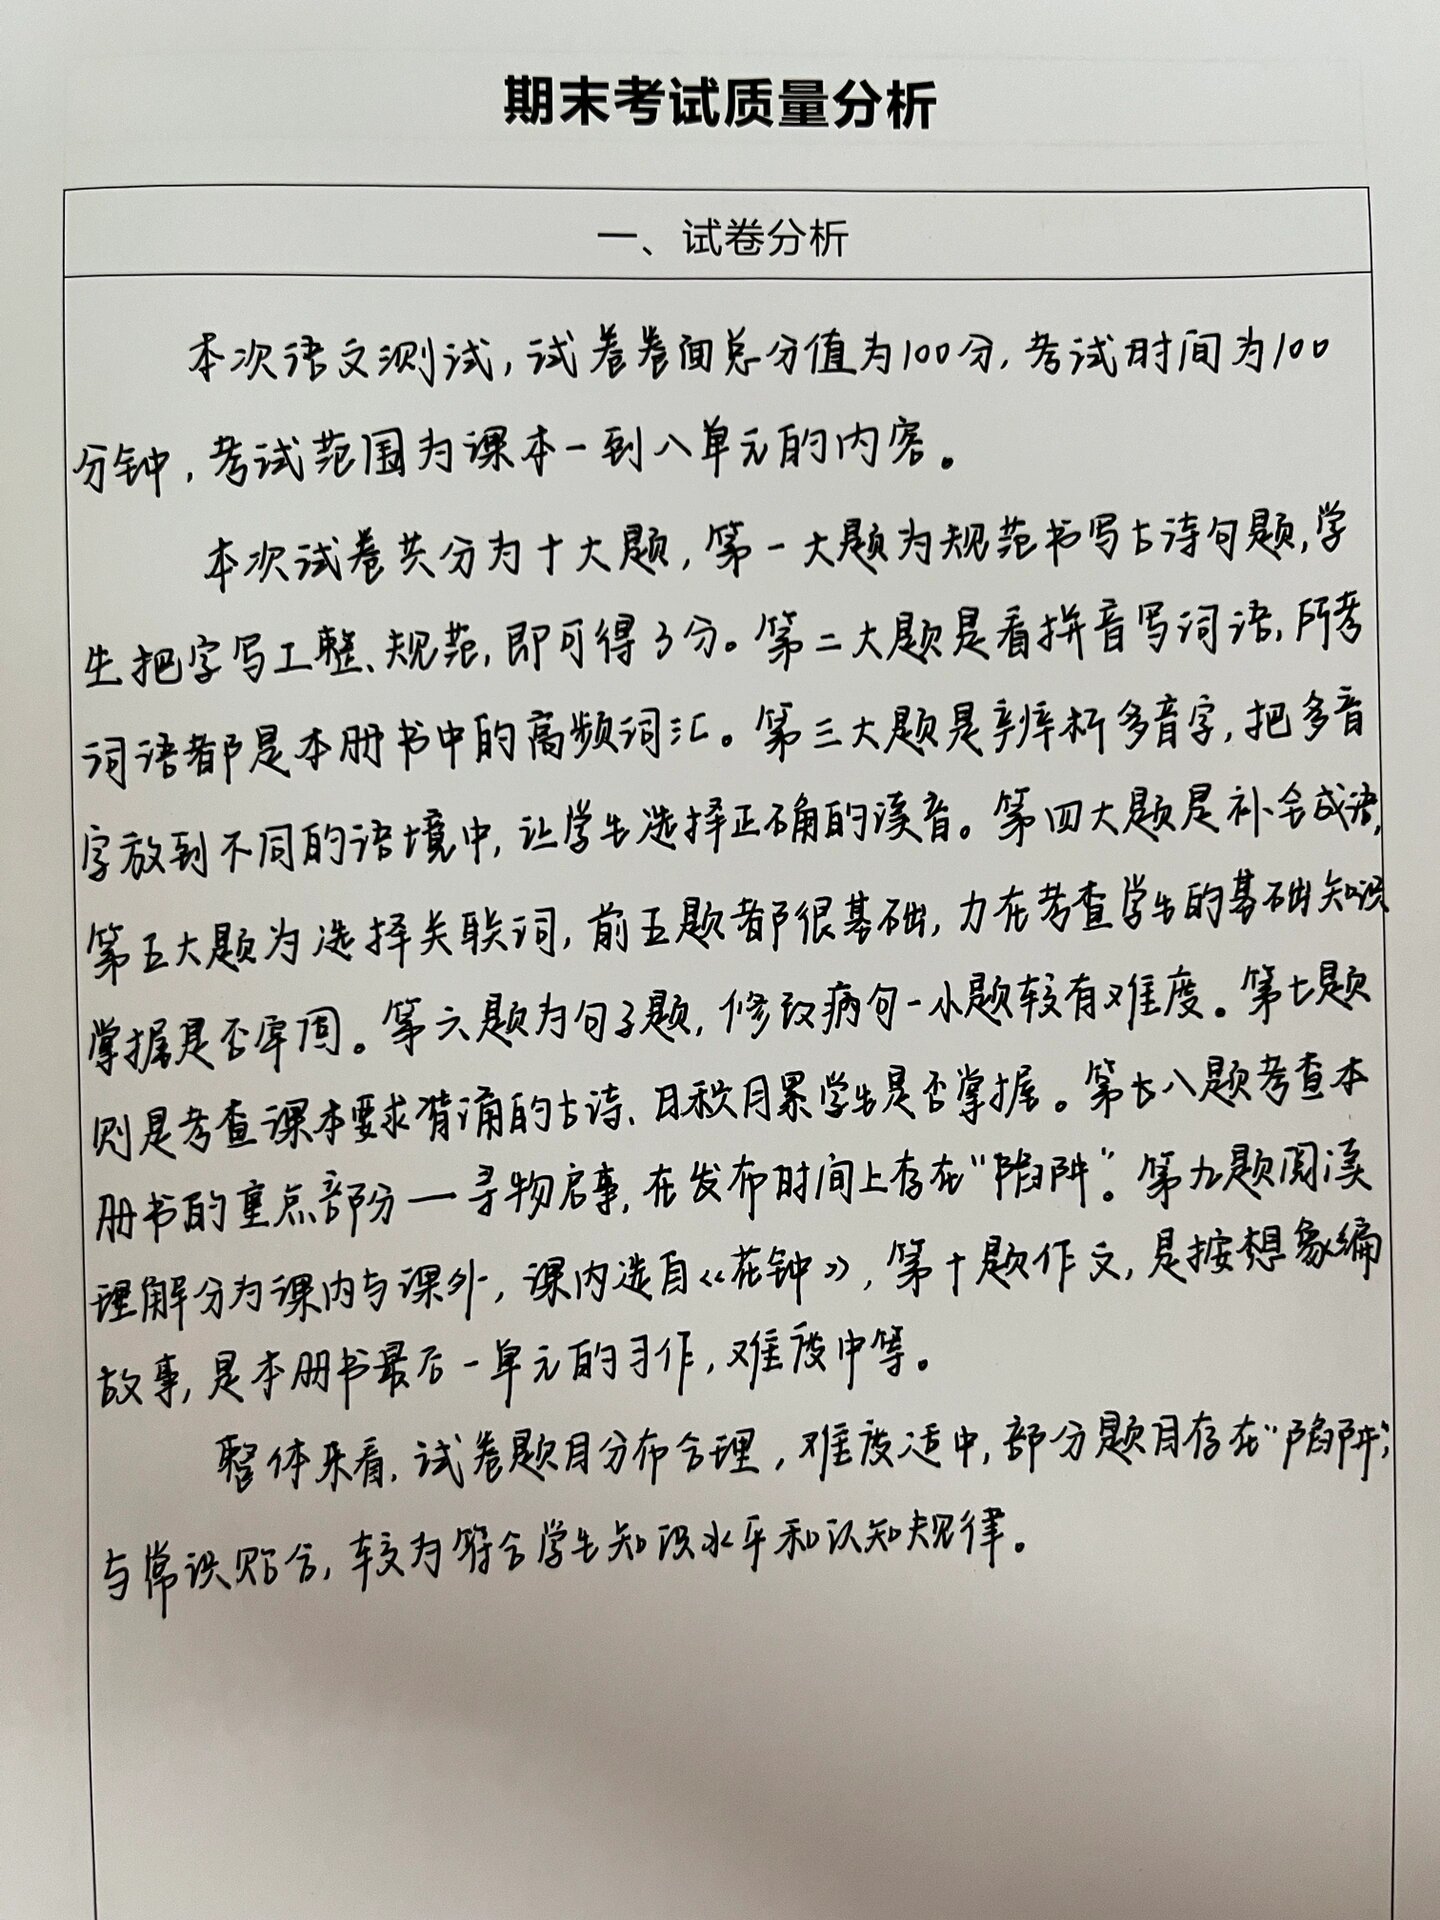 期末考试质量分析
一、试卷分析
本次语文测试,试卷卷面总分值为100分,考试时间为100
分钟,考试范围为课本一到八单元的内容。
本次试卷共分为十大题,第一大题为规范书写古诗句题,学
生把字写工整、规范,即可得3分。第二大题是看拼音写词语,所考
词语都是本册书中的高频词汇。第三大题是辨析多音字,把多音
字放到不同的语境中,让学生选择正确的读音。第四大题是补全成语,
第五大题为选择关联词,前五题都很基础,力在考查学生的基础知识
掌握是否牢固。第六题为句子题,修改病句一小题较有难度。第七题
则是考查课本要求背诵的古诗、日积月累学生是否掌握。第七八题考查本
册书的重点部分一寻物启事,在发布时间上存在“陷阱”。第九题阅读
理解分为课内与课外,课内选自《花钟》,第十题作文,是按想象编
故事,是本册书最后一单元的习作,难度中等。
整体来看,试卷题目分布合理,难度适中,部分题目存在“陷阱”,
与常识贴合,较为符合学生知识水平和认知规律。